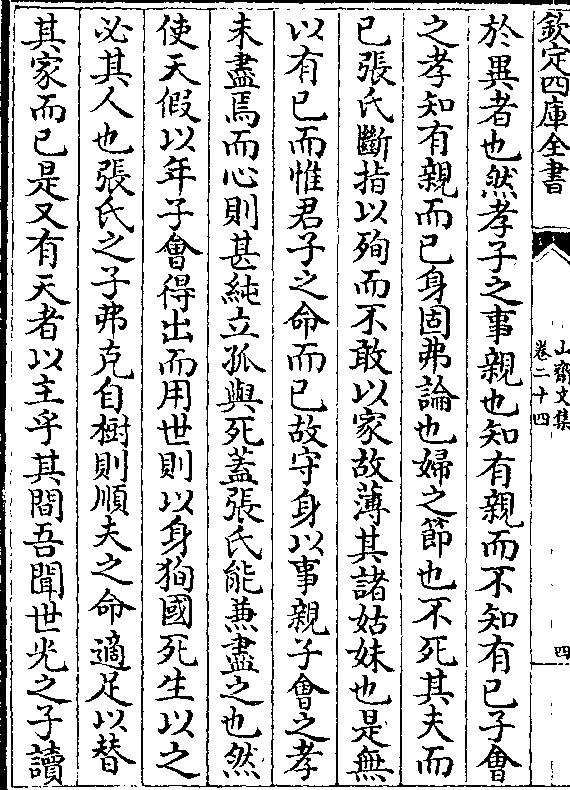 欽定四庫全書
山齋文集
卷二十四
四
於異者也然孝子之事親也知有親而不知有已子會
之孝知有親而已身固弗論也婦之節也不死其夫而
已張氏斷指以殉而不敢以家故薄其諸姑妹也是無
以有已而惟君子之命而已故守身以事親子會之孝
未盡焉而心則甚純立孤與死蓋張氏能兼盡之也然
使天假以年子會得出而用世則以身狥國死生以之
必其人也張氏之子弗克自樹則順夫之命適足以替
其家而已是又有天者以主乎其間吾聞世光之子讀